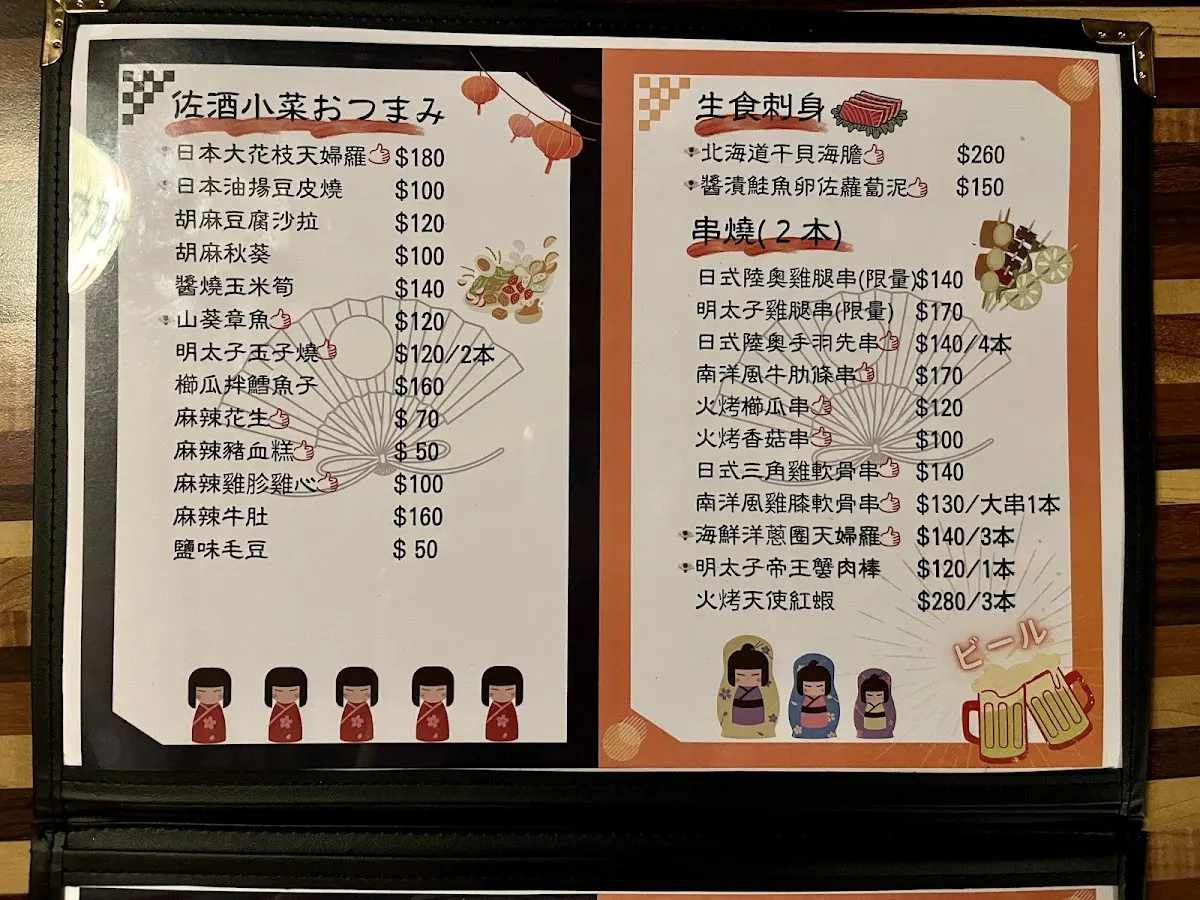 佐酒小菜おつまみ
日本大花枝天婦羅 $180
日本油揚豆皮燒 $100
胡麻豆腐沙拉 $120
胡麻秋葵 $100
醬燒玉米筍 $140
山葵章魚 $120
明太子玉子燒 $120/2本
櫛瓜拌鱈魚子 $160
麻辣花生 $ 70
麻辣豬血糕 $ 50
麻辣雞胗雞心 $100
麻辣牛肚 $160
鹽味毛豆 $ 50
生食刺身
北海道干貝海膽 $260
醬漬鮭魚卵佐蘿蔔泥 $150
串燒(2本)
日式陸奧雞腿串(限量)$140
明太子雞腿串(限量) $170
日式陸奧手羽先串 $140/4本
南洋風牛肋條串 $170
火烤櫛瓜串 $120
火烤香菇串 $100
日式三角雞軟骨串 $140
南洋風雞膝軟骨串 $130/大串1本
海鮮洋蔥圈天婦羅 $140/3本
明太子帝王蟹肉棒 $120/1本
火烤天使紅蝦 $280/3本
ビール